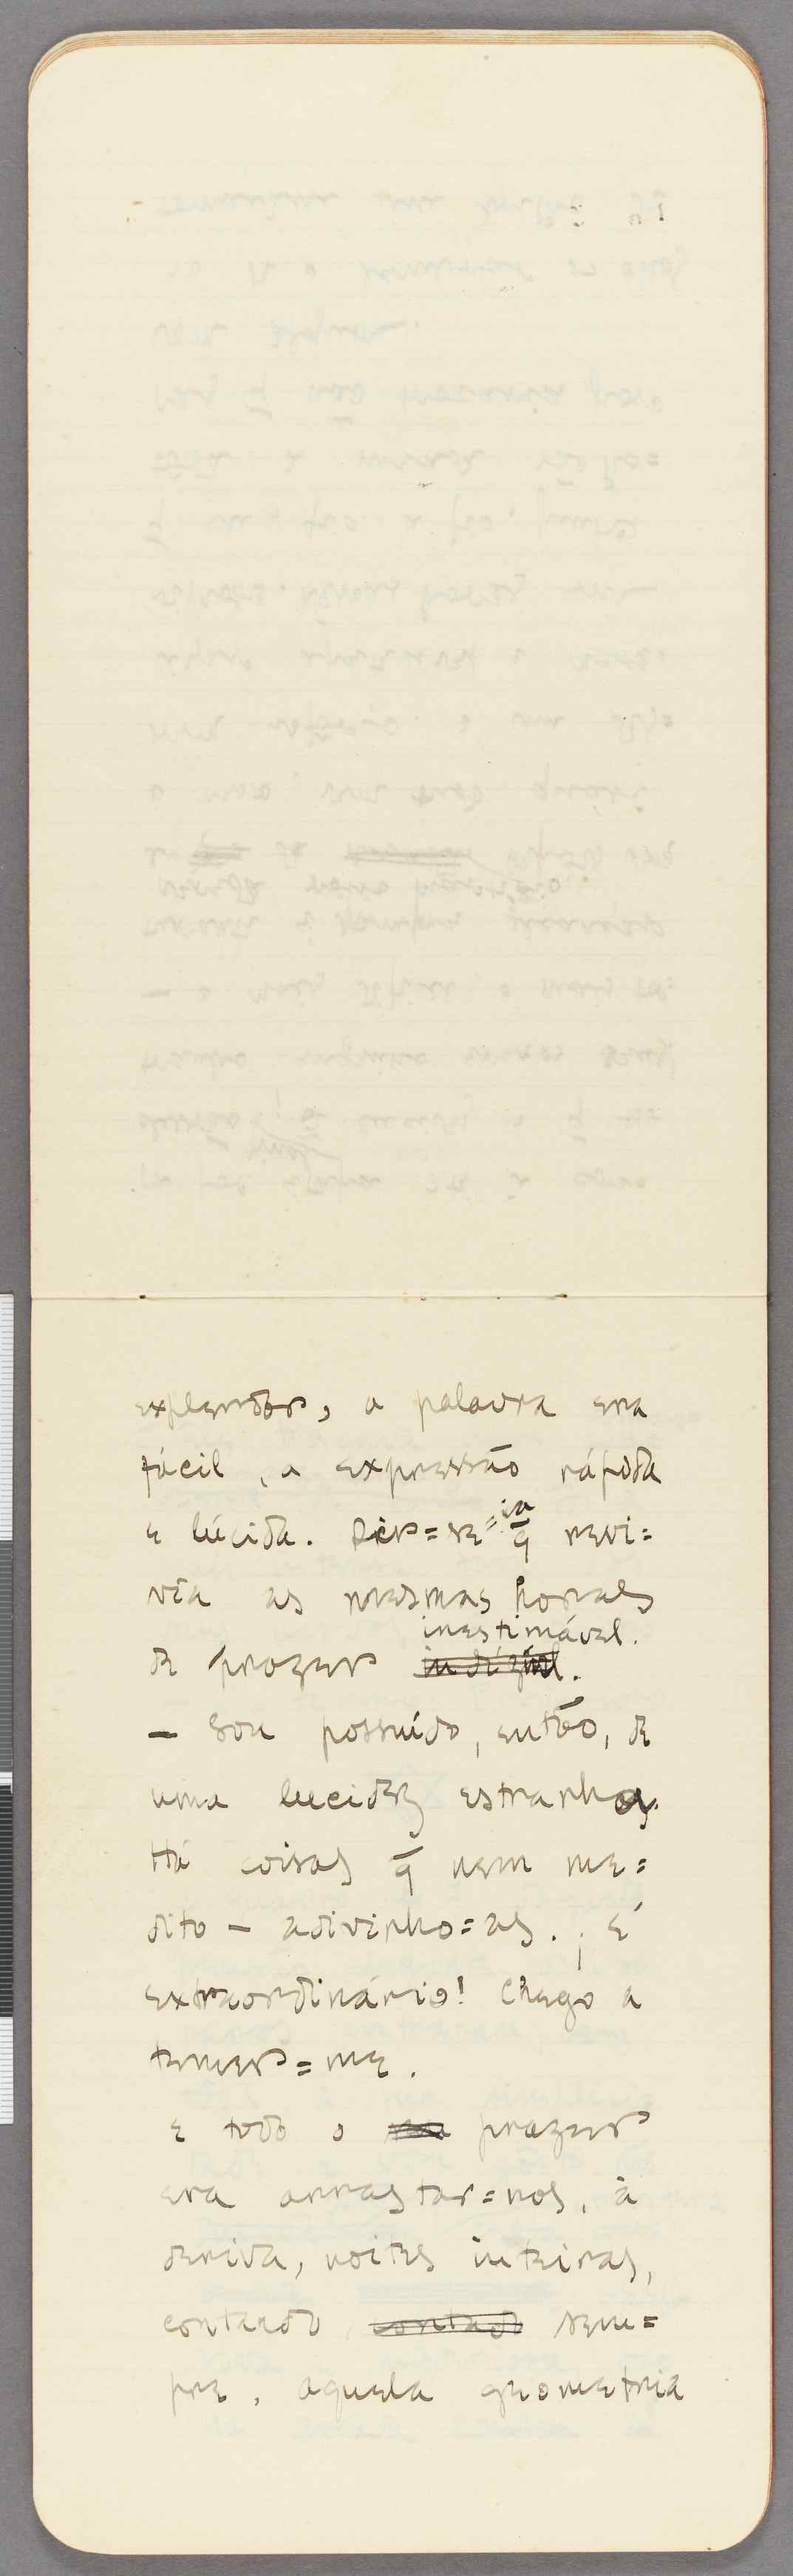 explendor, a palavra era
fácil, a expressão rápida
e lúcida. Dir=se=ia q̄ revi=
via as mesmas horas
de prazer inestimável.
indizível.
— Sou possuído, então, de
uma lucidez estranha.
Há coisas q̄ nem me=
dito — adivinho=as. ; É
extraordinário! Chego a
temer=me.
E todo o prazer
era arrastar=nos, à
deriva, noites inteiras,
contando contado sem=
pre, aquela geometria